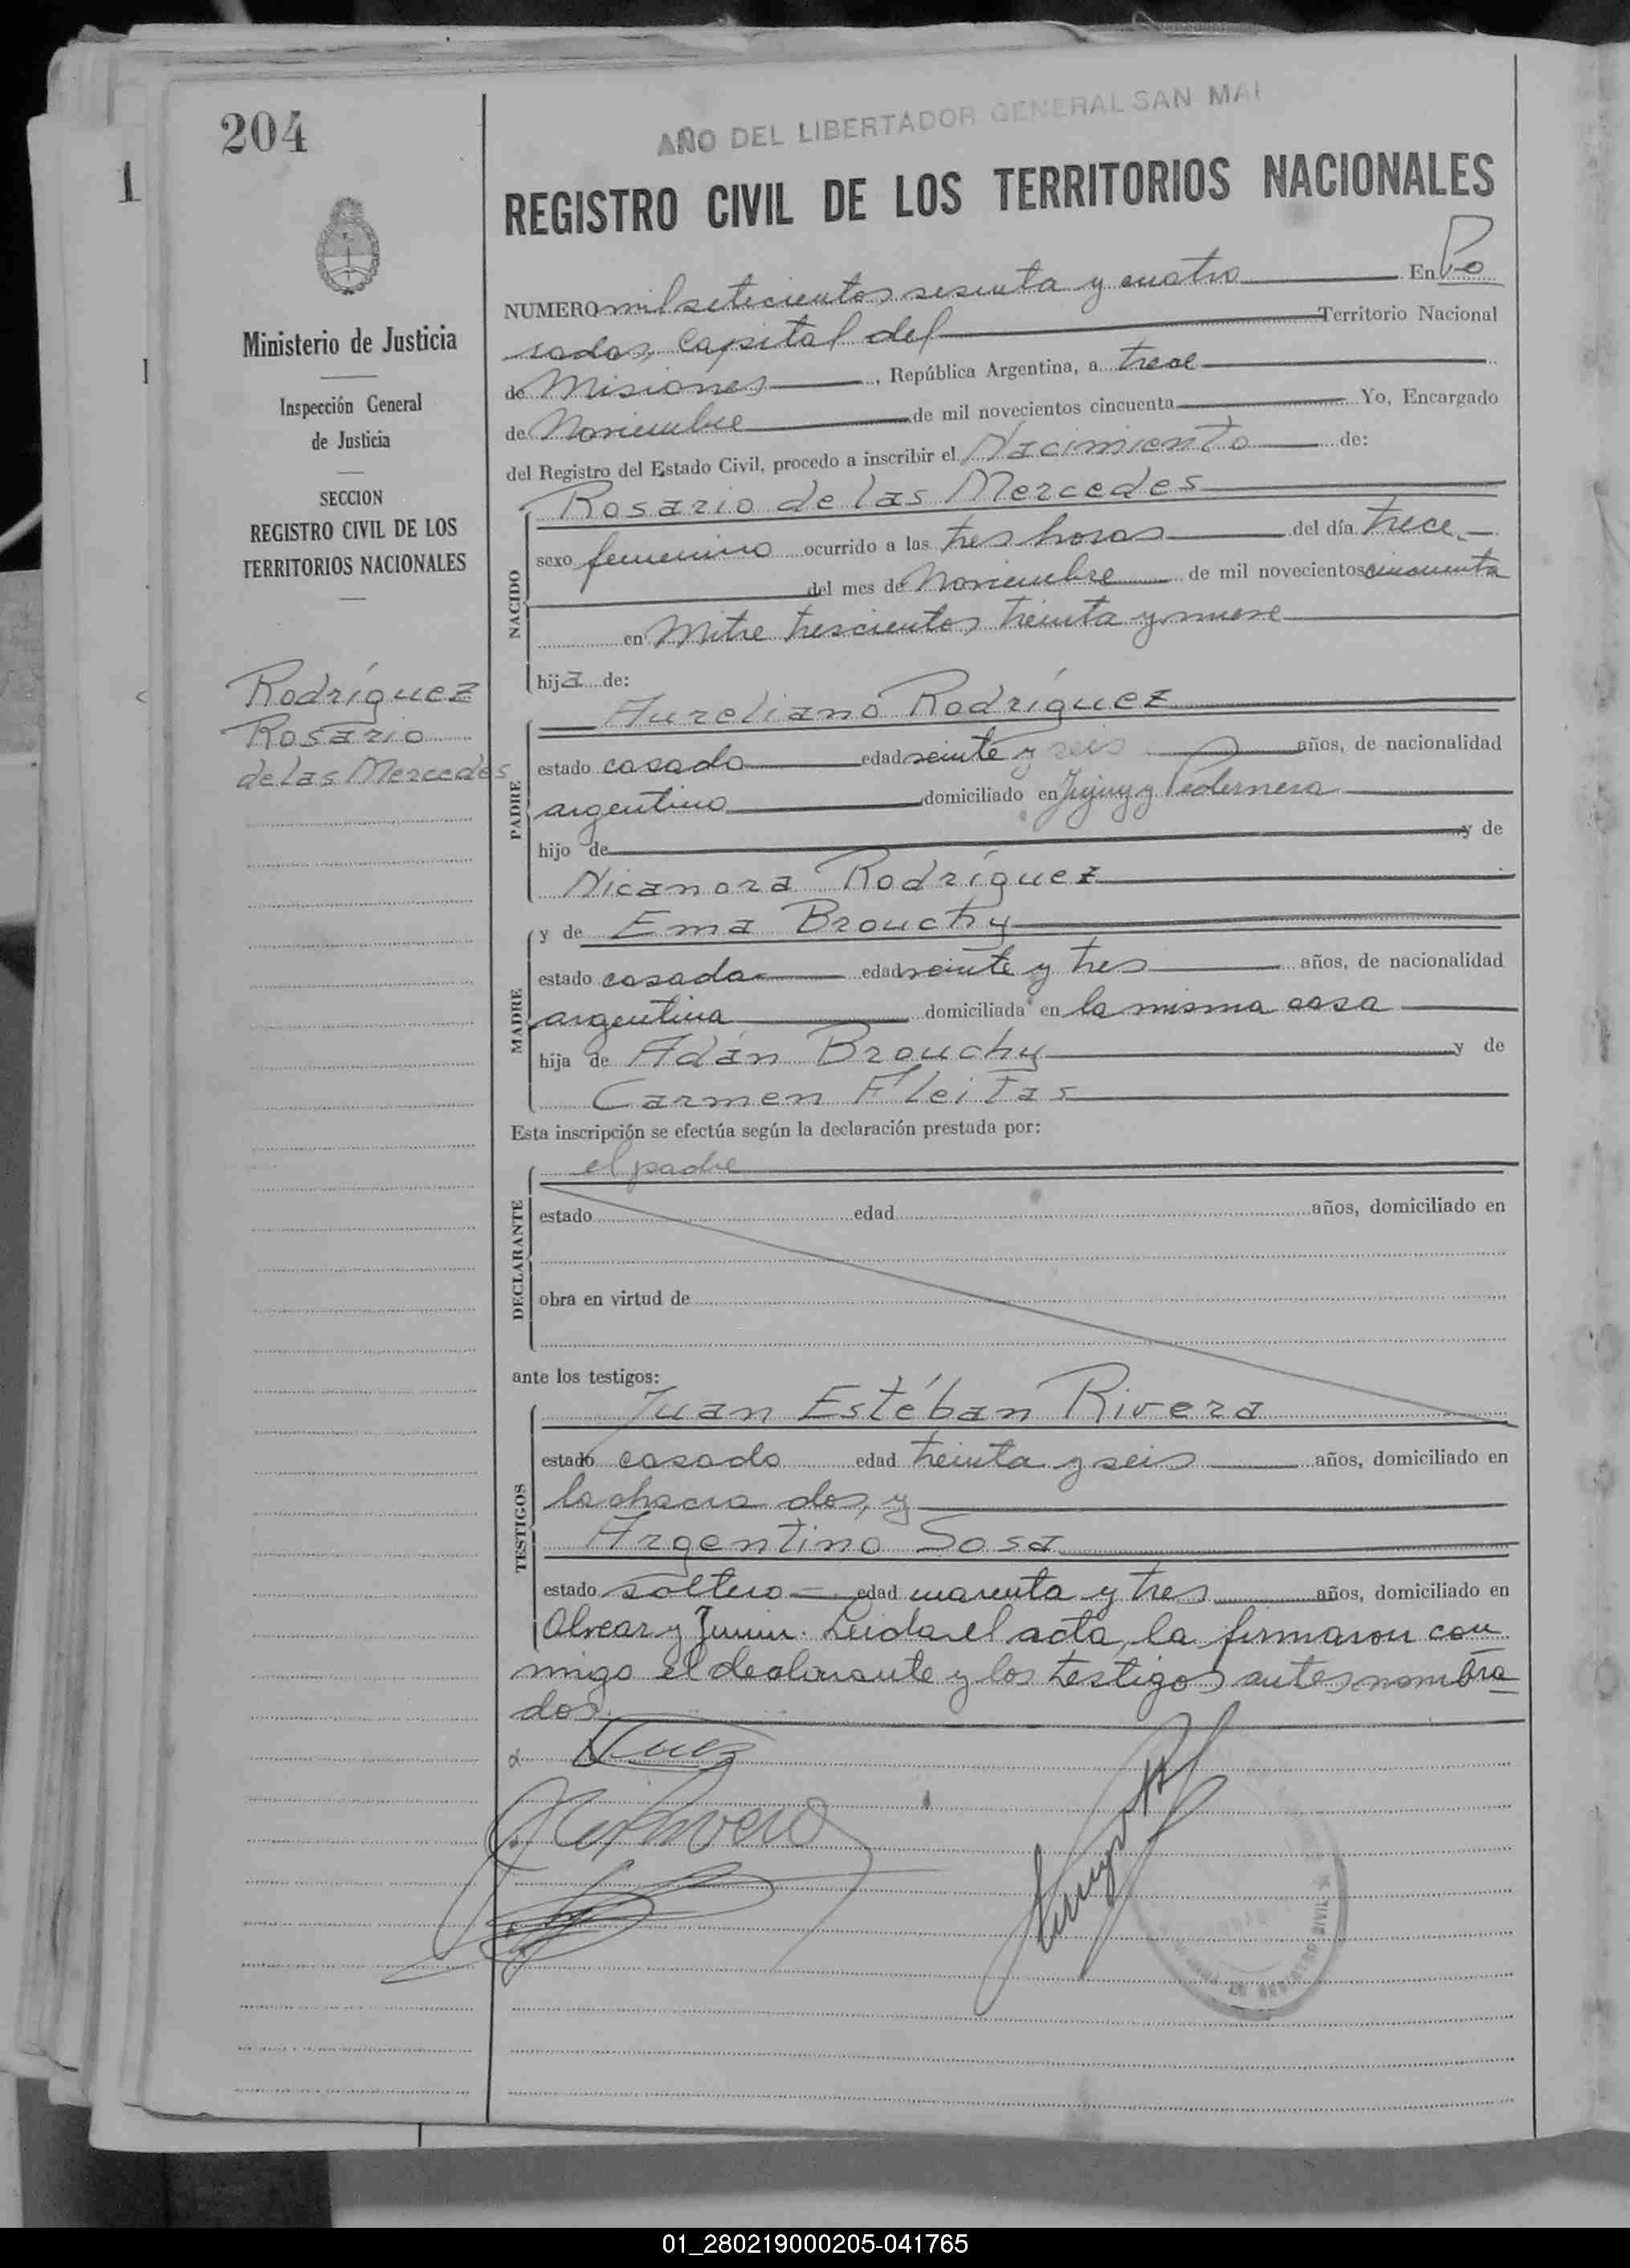 204
1
AÑO DEL LIBERTADOR GENERAL SAN MAR
REGISTRO CIVIL DE LOS TERRITORIOS NACIONALES
Ministerio de Justicia
Inspección General
de Justicia
SECCION
REGISTRO CIVIL DE LOS
TERRITORIOS NACIONALES
Rodríguez
Rosario
de las Mercedes
NUMERO mil setecientos sesenta y cuatro En Po
sadas, Capital del Territorio Nacional
de Misiones, República Argentina, a trece
de Noviembre de mil novecientos cincuenta Yo, Encargado
del Registro del Estado Civil, procedo a inscribir el Nacimiento de:
NACIDO
Rosario de las Mercedes
sexo femenino ocurrido a las tres horas del día trece
del mes de Noviembre de mil novecientos cincuenta
en Mitre trescientos treinta y nueve
hija de:
PADRE
Aureliano Rodríguez
estado casado edad veinte y seis años, de nacionalidad
argentino domiciliado en Jujuy y Pedernera
hijo de y de
Nicanora Rodríguez
MADRE
y de Ema Brouchy
estado casada edad veinte y tres años, de nacionalidad
argentina domiciliada en la misma casa
hija de Adán Brouchy y de
Carmen Fleitas
Esta inscripción se efectúa según la declaración prestada por:
DECLARANTE
el padre
estado edad años, domiciliado en
obra en virtud de
ante los testigos:
TESTIGOS
Juan Estéban Rivera
estado casado edad treinta y seis años, domiciliado en
la chacra dos, y
Argentino Sosa
estado soltero edad cuarenta y tres años, domiciliado en
Alvear y Junin. Leida el acta, la firmaron con
migo el declarante y los testigos antes nombra
dos.
REGISTRO CIVIL
01_280219000205-041765